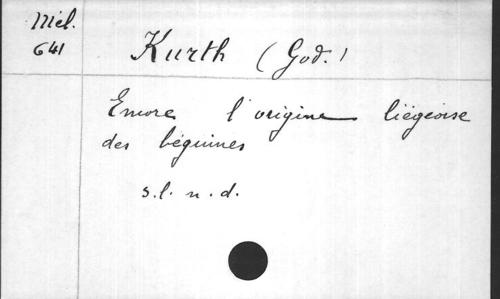 Mél.
641
Kurth (God.)
Encore l'origine liégeoise
des béguines
s.l. n.d.